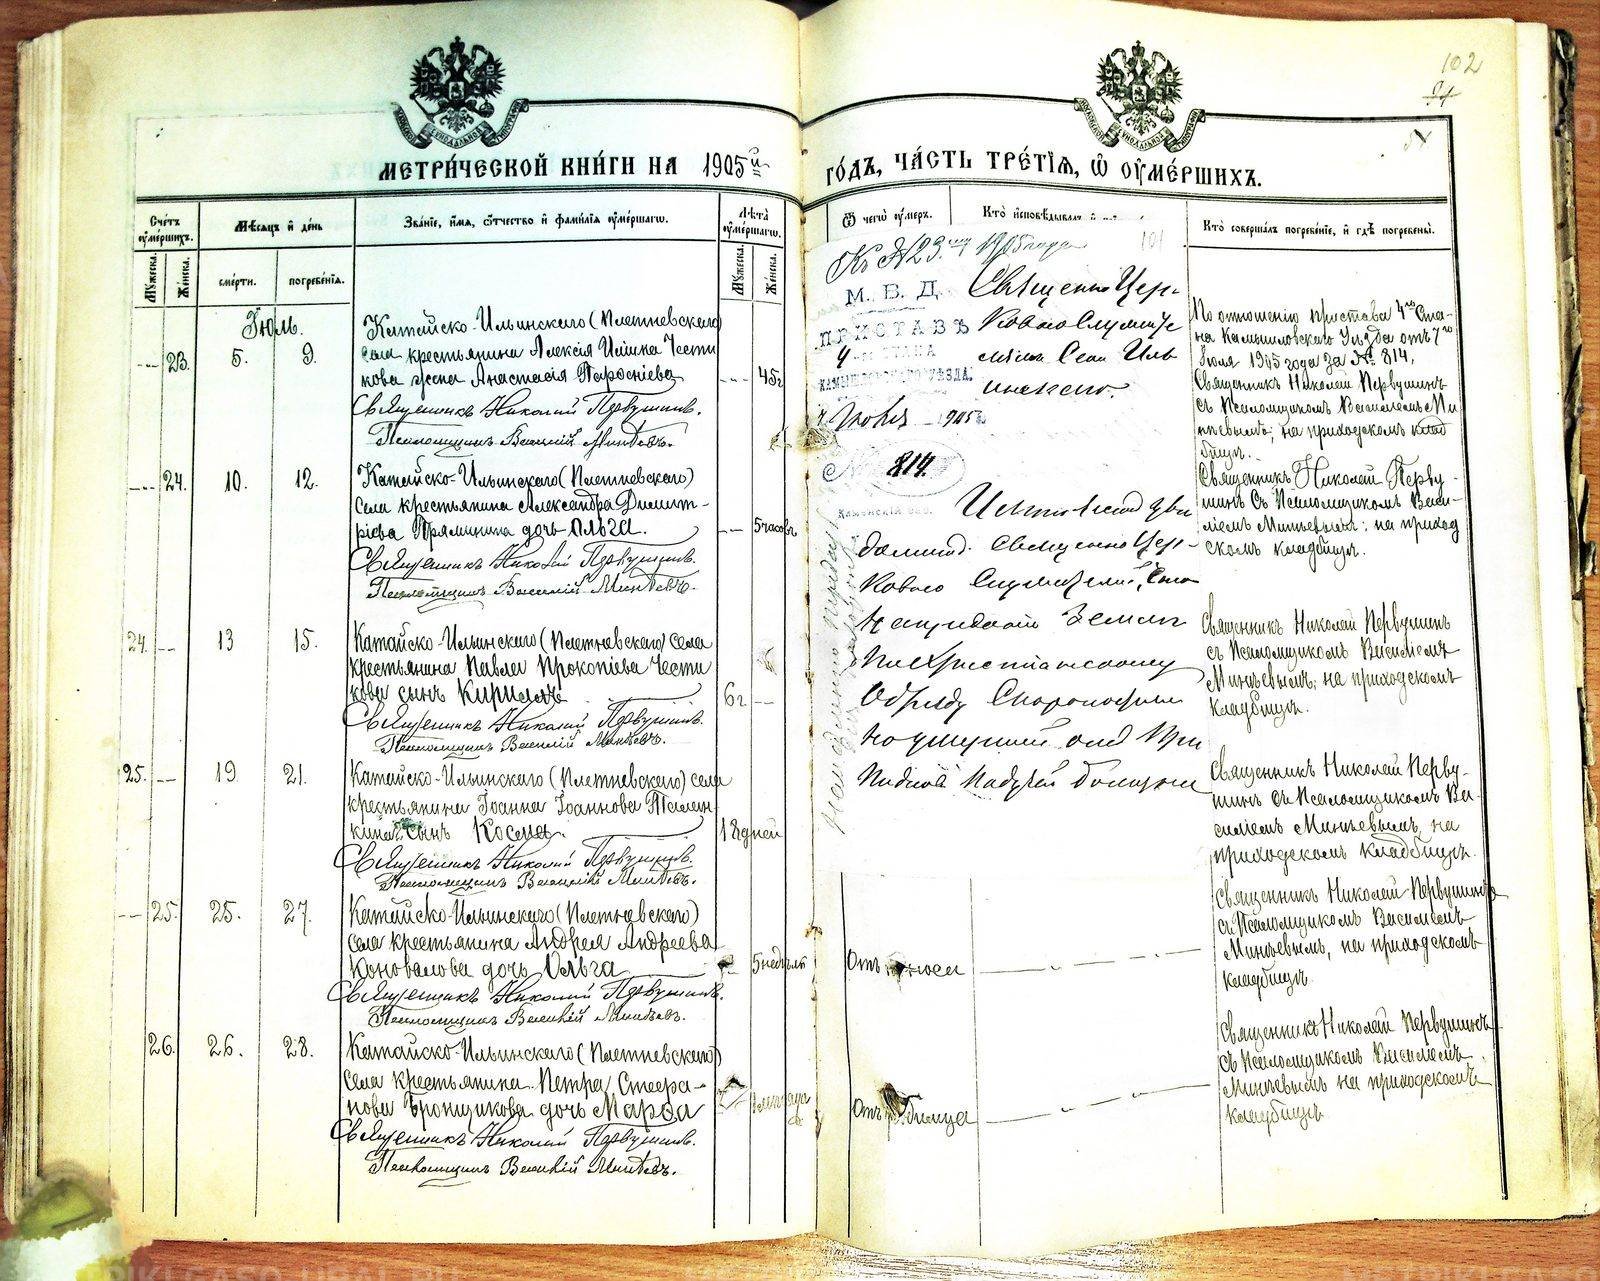 102
МЕТРИ́ЧЕСКОЙ КНИ́ГИ НА 1905й
ГО́ДЪ, ЧА́СТЬ ТРЕ́ТІЯ, Ѿ ОУМЕ́РШИХЪ.
Сче́тъ оумершихъ.
Мѣсяцъ и день
Зва́ніе, имя, отчество и фамилія оумершаго.
Лѣта оумершаго.
Ѿ чегѡ оумеръ.
Кто исповѣдывалъ и
Кто совершалъ погребеніе, и гдѣ погребены.
Мужеска.
Женска.
смерти.
погребенія.
Мужеска.
Женска.
Іюль.
23. 5. 9.
Катайско-Ильинскаго (Плетневскаго)
села крестьянина Алексія Чести
кова жена Анастасія
45 г
Священникъ Николай Первушинъ.
Псаломщикъ Василій Минѣевъ.
По отношенію пристава 4го Ста-
на Камышловскаго Уѣзда отъ 7го
Іюля 1905 года за № 814,
Священникъ Николай Первушинъ
съ Псаломщикомъ Василіемъ Ми
нѣевымъ; на приходскомъ клад
бищѣ.
24. 10. 12.
Катайско-Ильинскаго (Плетневскаго)
села крестьянина Александра Димит-
ріева Прямицина дочь Ольга.
5 часовъ
Священникъ Николай Первушинъ.
Псаломщикъ Василій Минѣевъ.
Священникъ Николай Перву-
шинъ съ Псаломщикомъ Васи-
ліемъ Минѣевымъ; на приход
скомъ кладбищѣ.
24. 13 15.
Катайско-Ильинскаго (Плетневскаго) села
крестьянина Павла Прокопіева Чести
кова сынъ Кириллъ
6 г
Священникъ Николай Первушинъ.
Псаломщикъ Василій Минѣевъ.
Священникъ Николай Первушинъ
съ Псаломщикомъ Василіемъ
Минѣевымъ; на приходскомъ
кладбищѣ.
25. 19 21.
Катайско-Ильинскаго (Плетневскаго) села
крестьянина Іоанна Іоаннова
сынъ Косма.
18 дней
Священникъ Николай Первушинъ.
Псаломщикъ Василій Минѣевъ.
Священникъ Николай Перву-
шинъ съ Псаломщикомъ Ва-
силіемъ Минѣевымъ, на
приходскомъ кладбищѣ.
25. 25. 27.
Катайско-Ильинскаго (Плетневскаго)
села крестьянина Андрея Андреева
Коновалова дочь Ольга
5 недѣль
Отъ поноса
Священникъ Николай Первушинъ.
Псаломщикъ Василій Минѣевъ.
Священникъ Николай Первушинъ
съ Псаломщикомъ Василіемъ
Минѣевымъ, на приходскомъ
кладбищѣ.
26. 26. 28.
Катайско-Ильинскаго (Плетневскаго)
села крестьянина Петра Стефа-
нова Бронщикова дочь Марѳа
Отъ
Священникъ Николай Первушинъ.
Псаломщикъ Василій Минѣевъ.
Священникъ Николай Первушинъ
съ Псаломщикомъ Василіемъ
Минѣевымъ на приходскомъ
кладбищѣ
Къ № 23. 1905 года
101
М. В. Д.
ПРИСТАВЪ
4 СТАНА
КАМЫШЛОВСКАГО УѢЗДА.
1905 г.
№ 814.
Священно Цер-
ковно Служите
лямъ Села Иль
инскаго.
Священно Цер-
ковно Служители
земли
по христіанскому
обряду скоропостиж
но умершей отъ при
падковъ падучей болезни